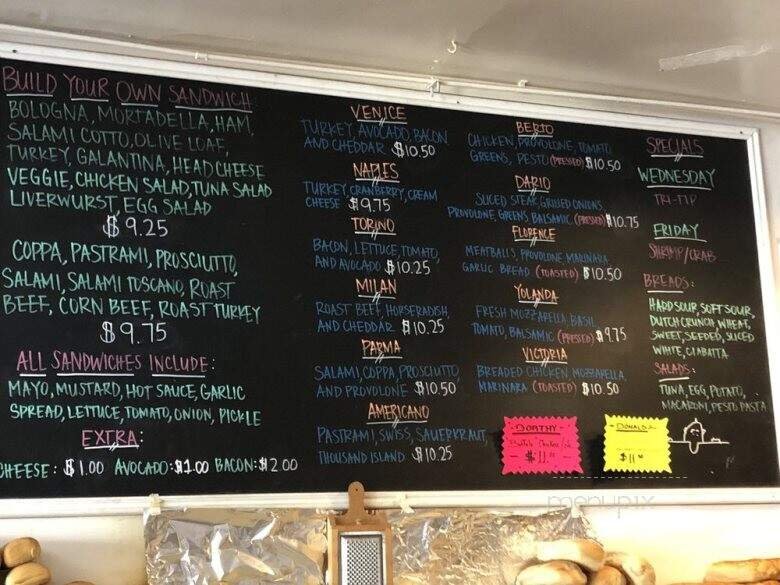 BUILD YOUR OWN SANDWICH
BOLOGNA, MORTADELLA, HAM,
SALAMI COTTO, OLIVE LOAF,
TURKEY, GALANTINA, HEAD CHEESE
VEGGIE, CHICKEN SALAD, TUNA SALAD
LIVERWURST, EGG SALAD
$9.25
COPPA, PASTRAMI, PROSCIUTTO,
SALAMI, SALAMI TOSCANO, ROAST
BEEF, CORN BEEF, ROAST TURKEY
$9.75
ALL SANDWICHES INCLUDE:
MAYO, MUSTARD, HOT SAUCE, GARLIC
SPREAD, LETTUCE, TOMATO, ONION, PICKLE
EXTRA:
CHEESE: $1.00 AVOCADO: $1.00 BACON: $2.00
VENICE
TURKEY, AVOCADO, BACON
AND CHEDDAR $10.50
NAPLES
TURKEY, CRANBERRY, CREAM
CHEESE $9.75
TORINO
BACON, LETTUCE, TOMATO,
AND AVOCADO $10.25
MILAN
ROAST BEEF, HORSERADISH,
AND CHEDDAR $10.25
PARMA
SALAMI, COPPA, PROSCIUTTO
AND PROVOLONE $10.50
AMERICANO
PASTRAMI, SWISS, SAUERKRAUT,
THOUSAND ISLAND $10.25
BERTO
CHICKEN, PROVOLONE, TOMATO
GREENS, PESTO (PRESSED) $10.50
DARIO
SLICED STEAK, GRILLED ONIONS,
PROVOLONE, GREENS, BALSAMIC (PRESSED) $10.75
FLORENCE
MEATBALLS, PROVOLONE, MARINARA
GARLIC BREAD (TOASTED) $10.50
YOLANDA
FRESH MOZZARELLA, BASIL
TOMATO, BALSAMIC (PRESSED) $9.75
VICTORIA
BREADED CHICKEN, MOZZARELLA,
MARINARA (TOASTED) $10.50
DORTHY
$11.
DONALD
$11.
SPECIALS
WEDNESDAY
TRI-TIP
FRIDAY
SHRIMP/CRAB
BREADS:
HARD SOUR, SOFT SOUR,
DUTCH CRUNCH, WHEAT,
SWEET, SEEDED, SLICED
WHITE, CIABATTA
SALADS:
TUNA, EGG, POTATO,
MACARONI, PESTO PASTA
menupix